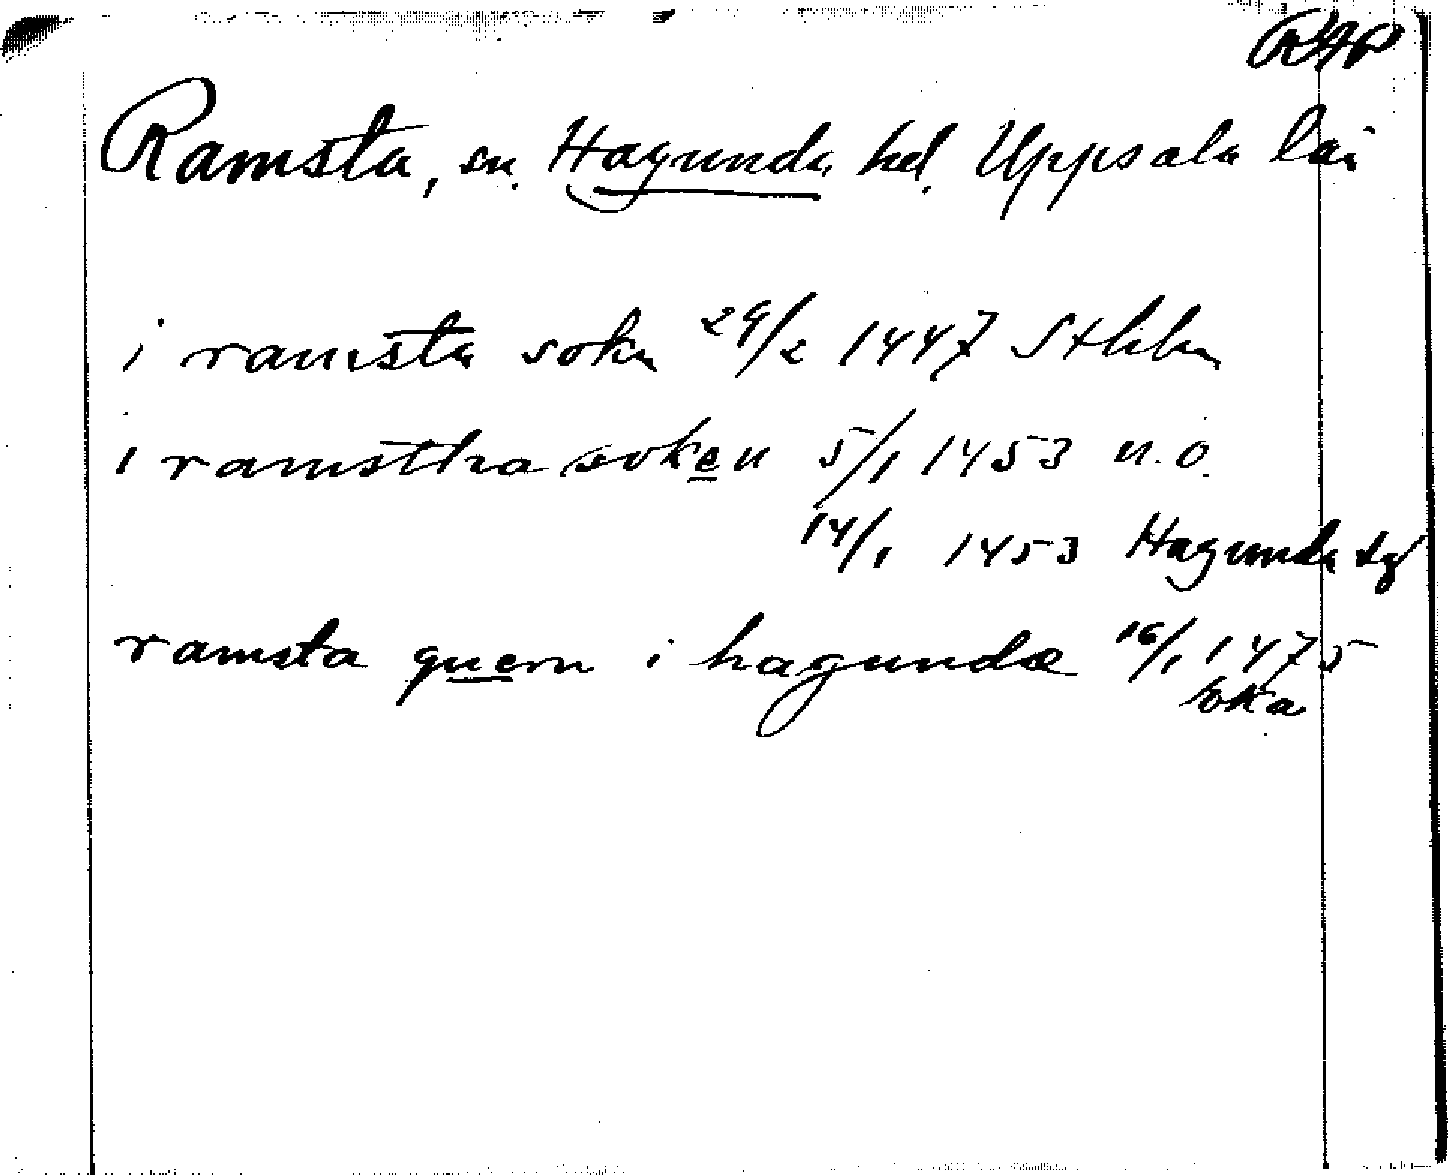 RAP
Ramsta, sn. Hagunda hd. Uppsala län
i ramsta sokn 29/2 1447 Sthlm
i ramstha soken 5/1 1453 n.o.
14/1 1453 Hagunda tg
ramsta quern i hagundæ 16/1 1475
Eka